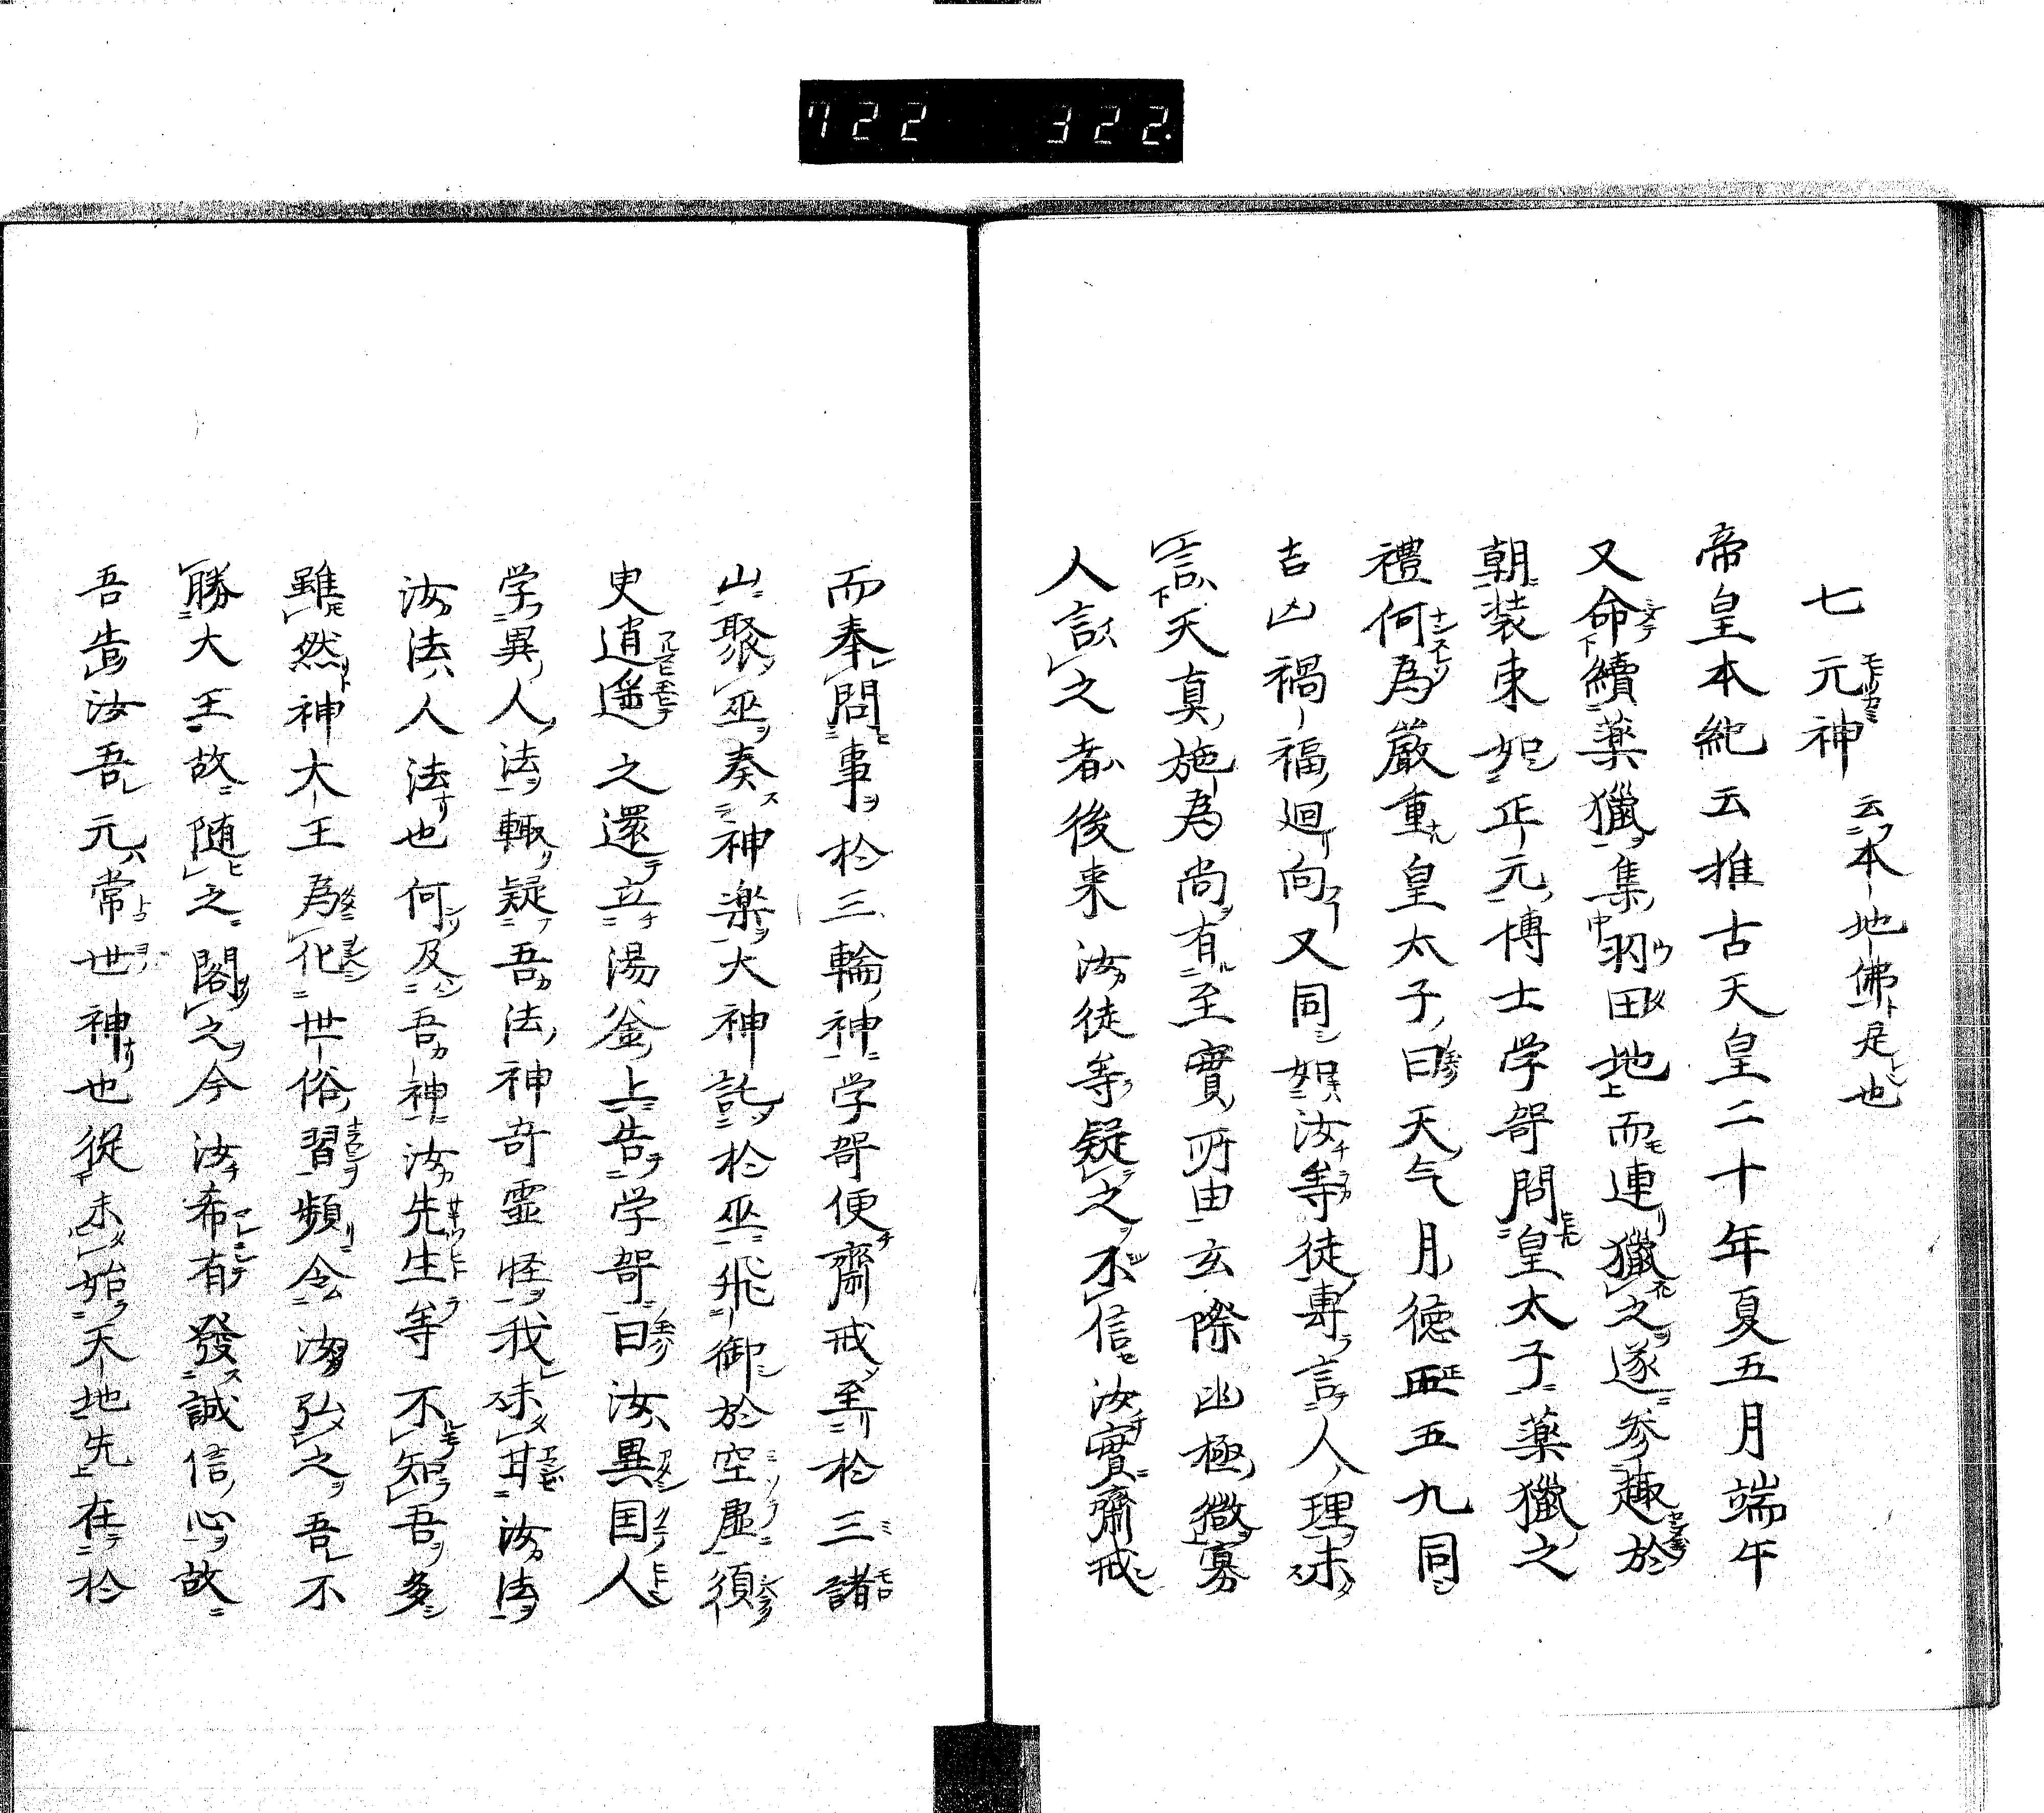 722 322
七元神 云本地佛是也
帝皇本紀云推古天皇二十年夏五月端午
又命續薬獵集羽田地而連獵之遂参趣於
朝装束如正元博士学哿問皇太子薬獵之
禮何為厳重皇太子曰天气月徳正五九同
吉凶禍福廻向又同如汝等徒專言人理未
言天真施為尚有至實所由玄際幽極微寡
人言之者後来汝徒等疑之不信汝實齋戒
而奉問事於三輪神学哿便齋戒至於三諸
山聚巫奏神楽大神託於巫飛御於空虚須
史逍遥之還立湯釜上告学哿曰汝異国人
学異人法輙疑吾法神奇霊怪我未甘汝法
汝法人法也何及吾神汝先生等不知吾多
雖然神大王為化世俗習頻念汝弘之吾不
勝大王故随之閣之今汝希有發誠信心故
吾告汝吾元常世神也從未始天地先在於